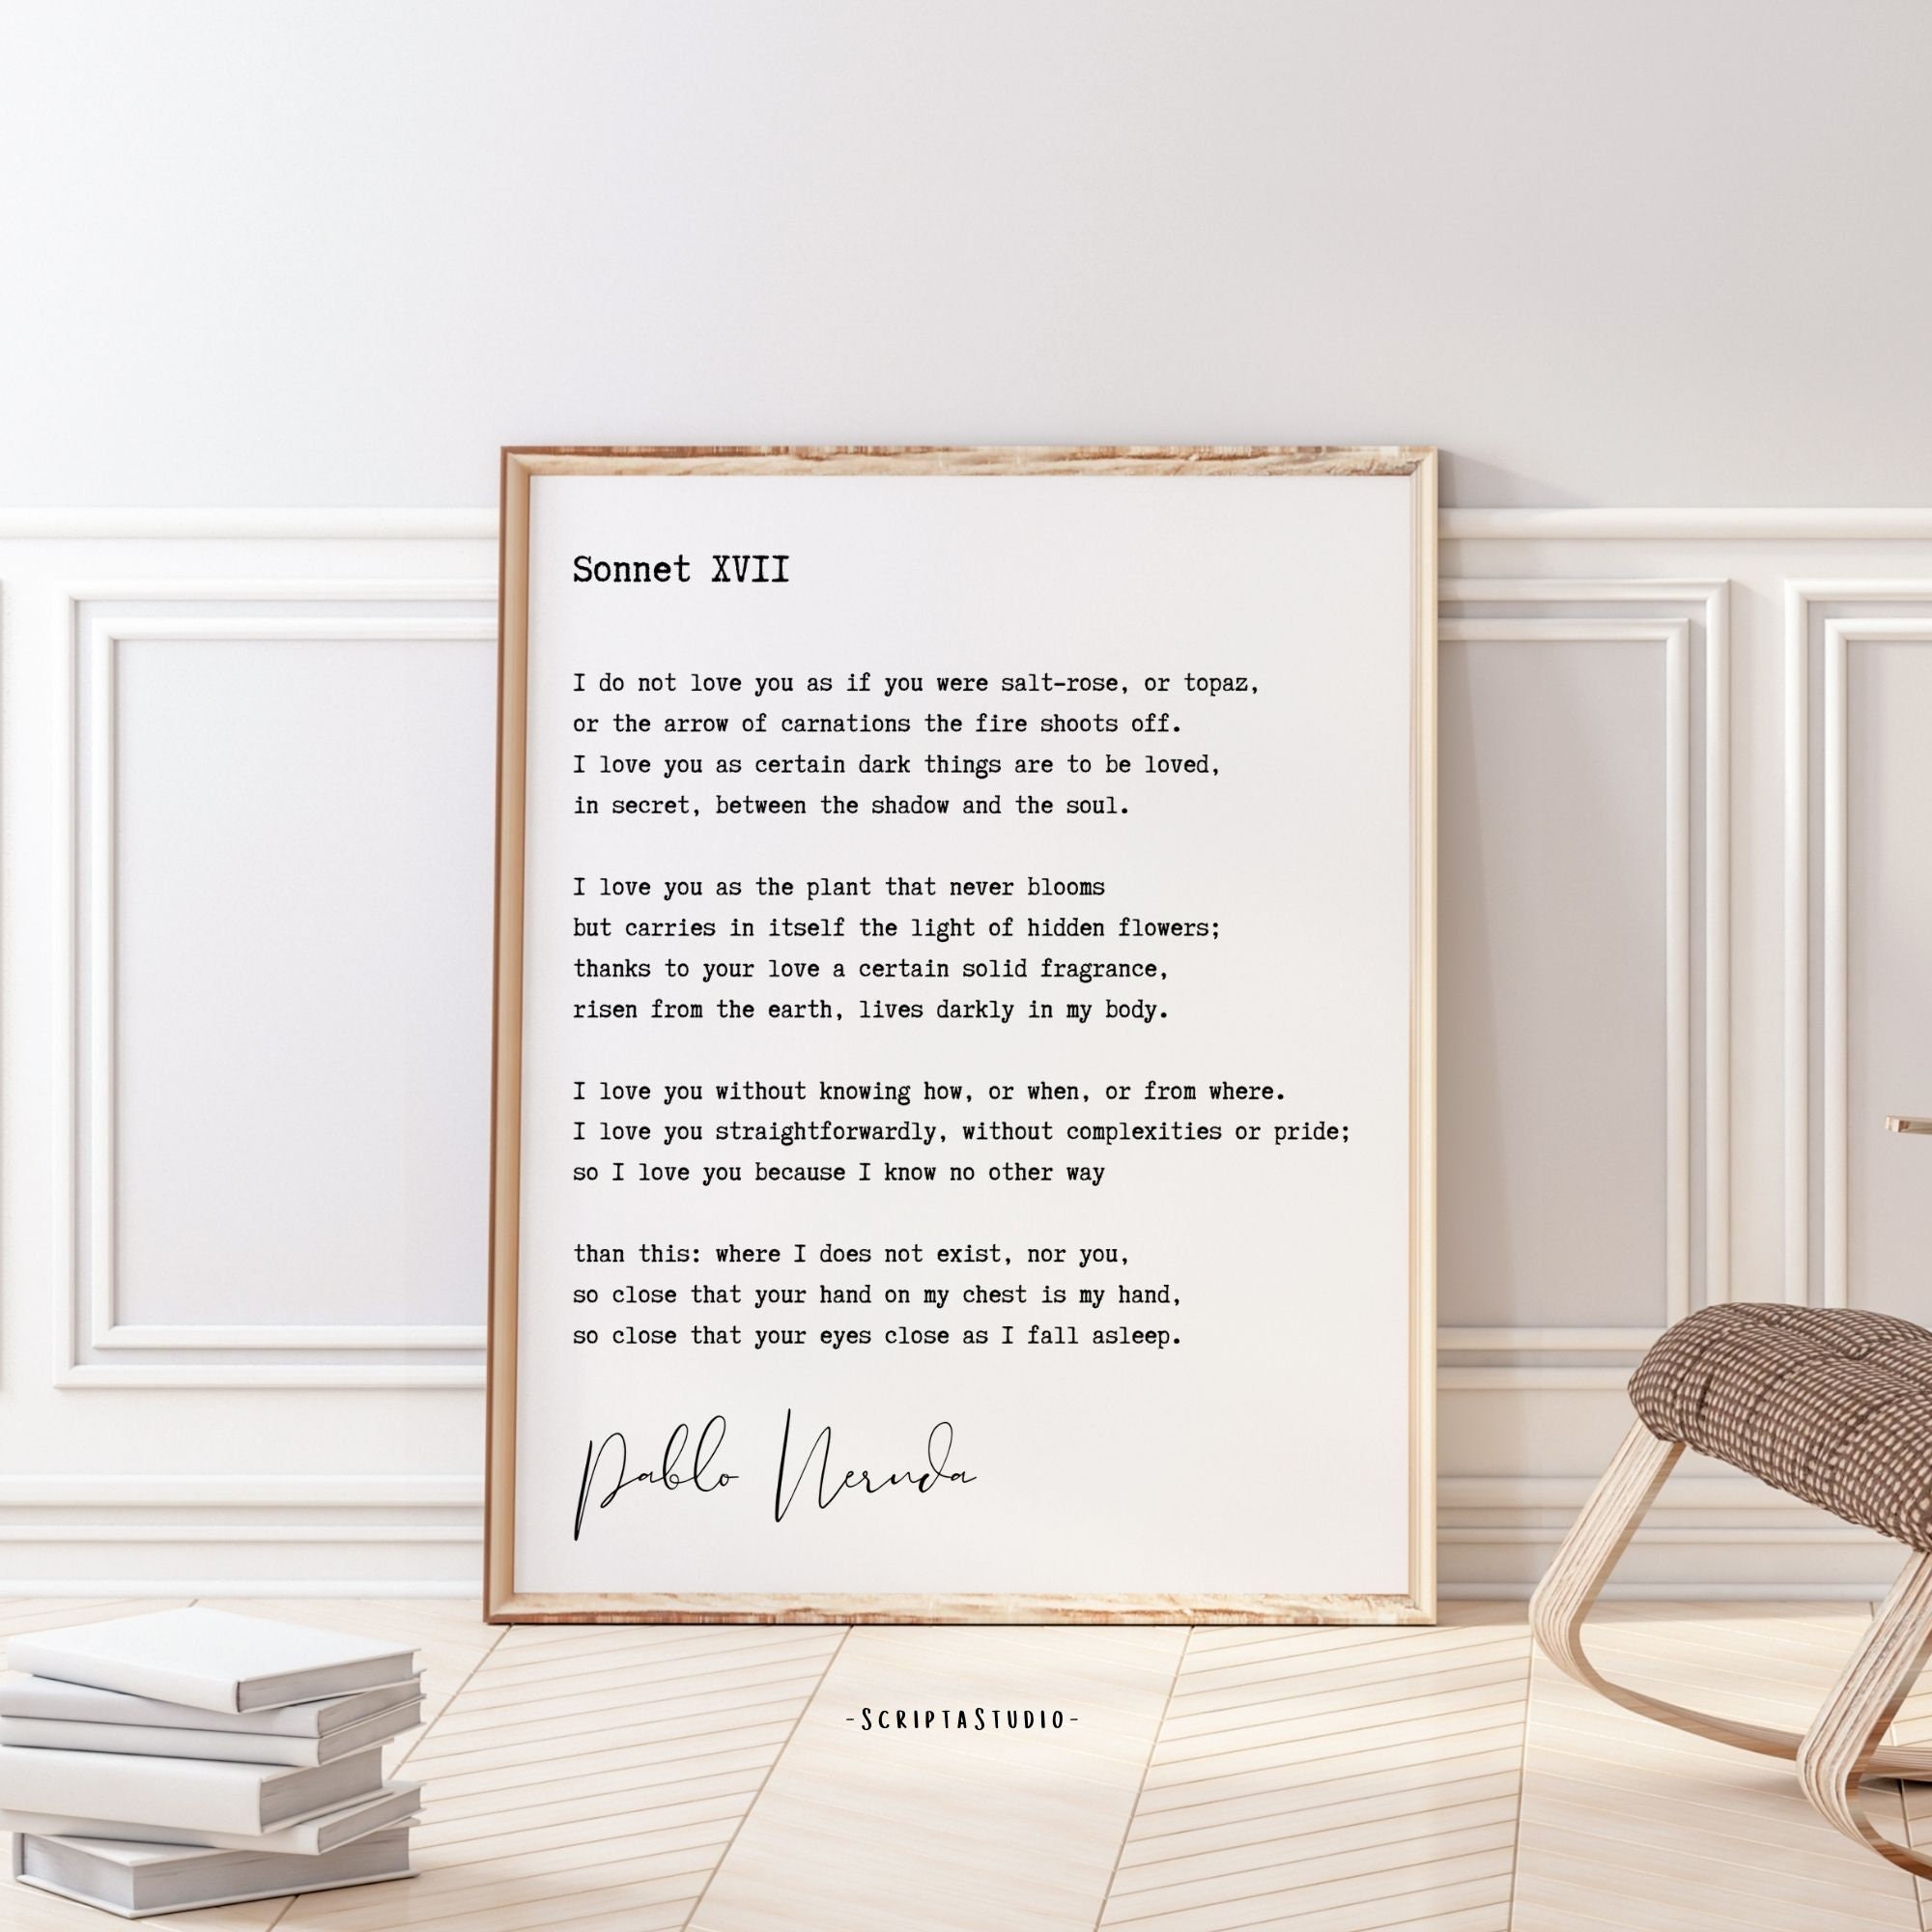 Sonnet XVII
I do not love you as if you were salt-rose, or topaz,
or the arrow of carnations the fire shoots off.
I love you as certain dark things are to be loved,
in secret, between the shadow and the soul.
I love you as the plant that never blooms
but carries in itself the light of hidden flowers;
thanks to your love a certain solid fragrance,
risen from the earth, lives darkly in my body.
I love you without knowing how, or when, or from where.
I love you straightforwardly, without complexities or pride;
so I love you because I know no other way
than this: where I does not exist, nor you,
so close that your hand on my chest is my hand,
so close that your eyes close as I fall asleep.
Pablo Neruda
-SCRIPTASTUDIO-